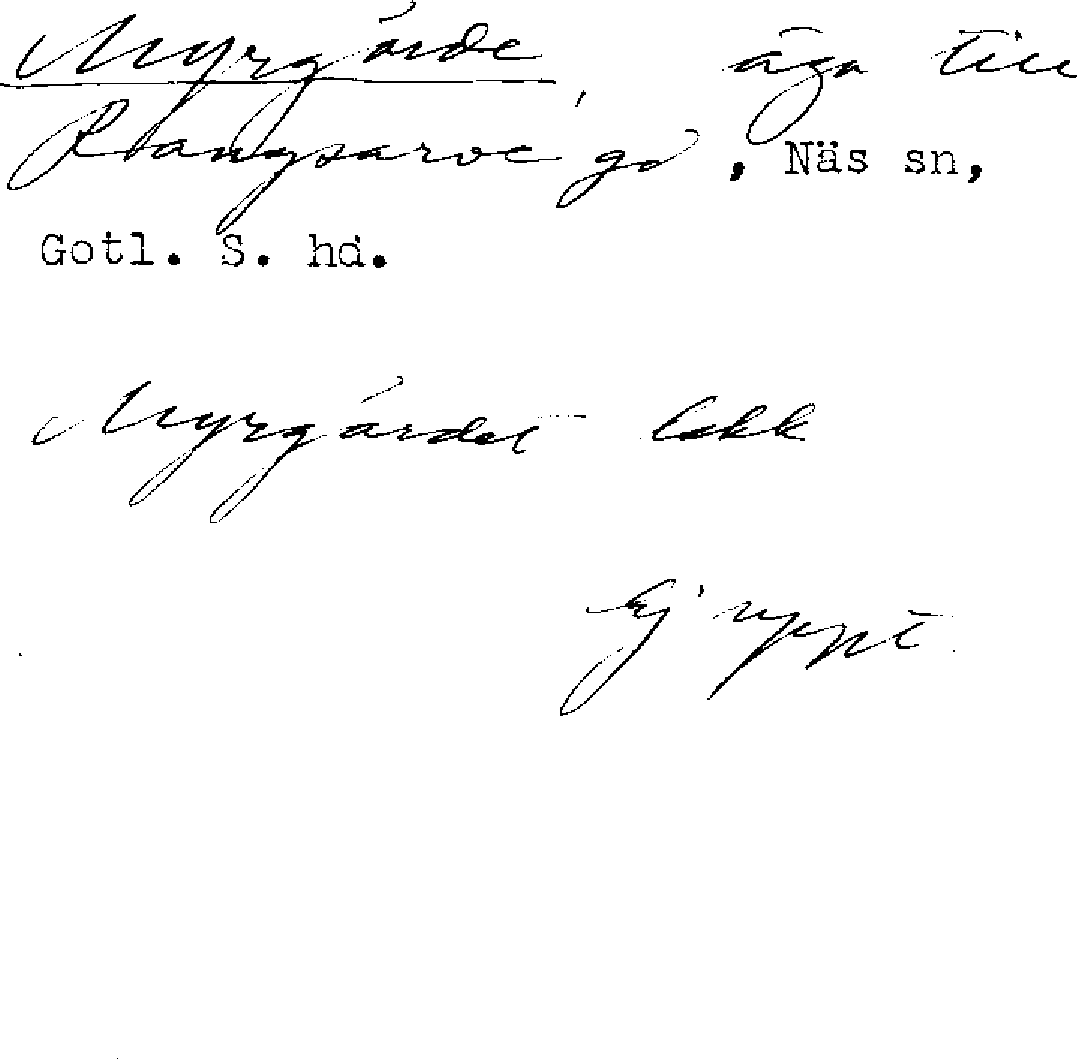 Myrgårde, äga till
Rangsarve gd, Näs sn,
Gotl. S. hd.
Myrgårdet Lekk
Ej uppt.